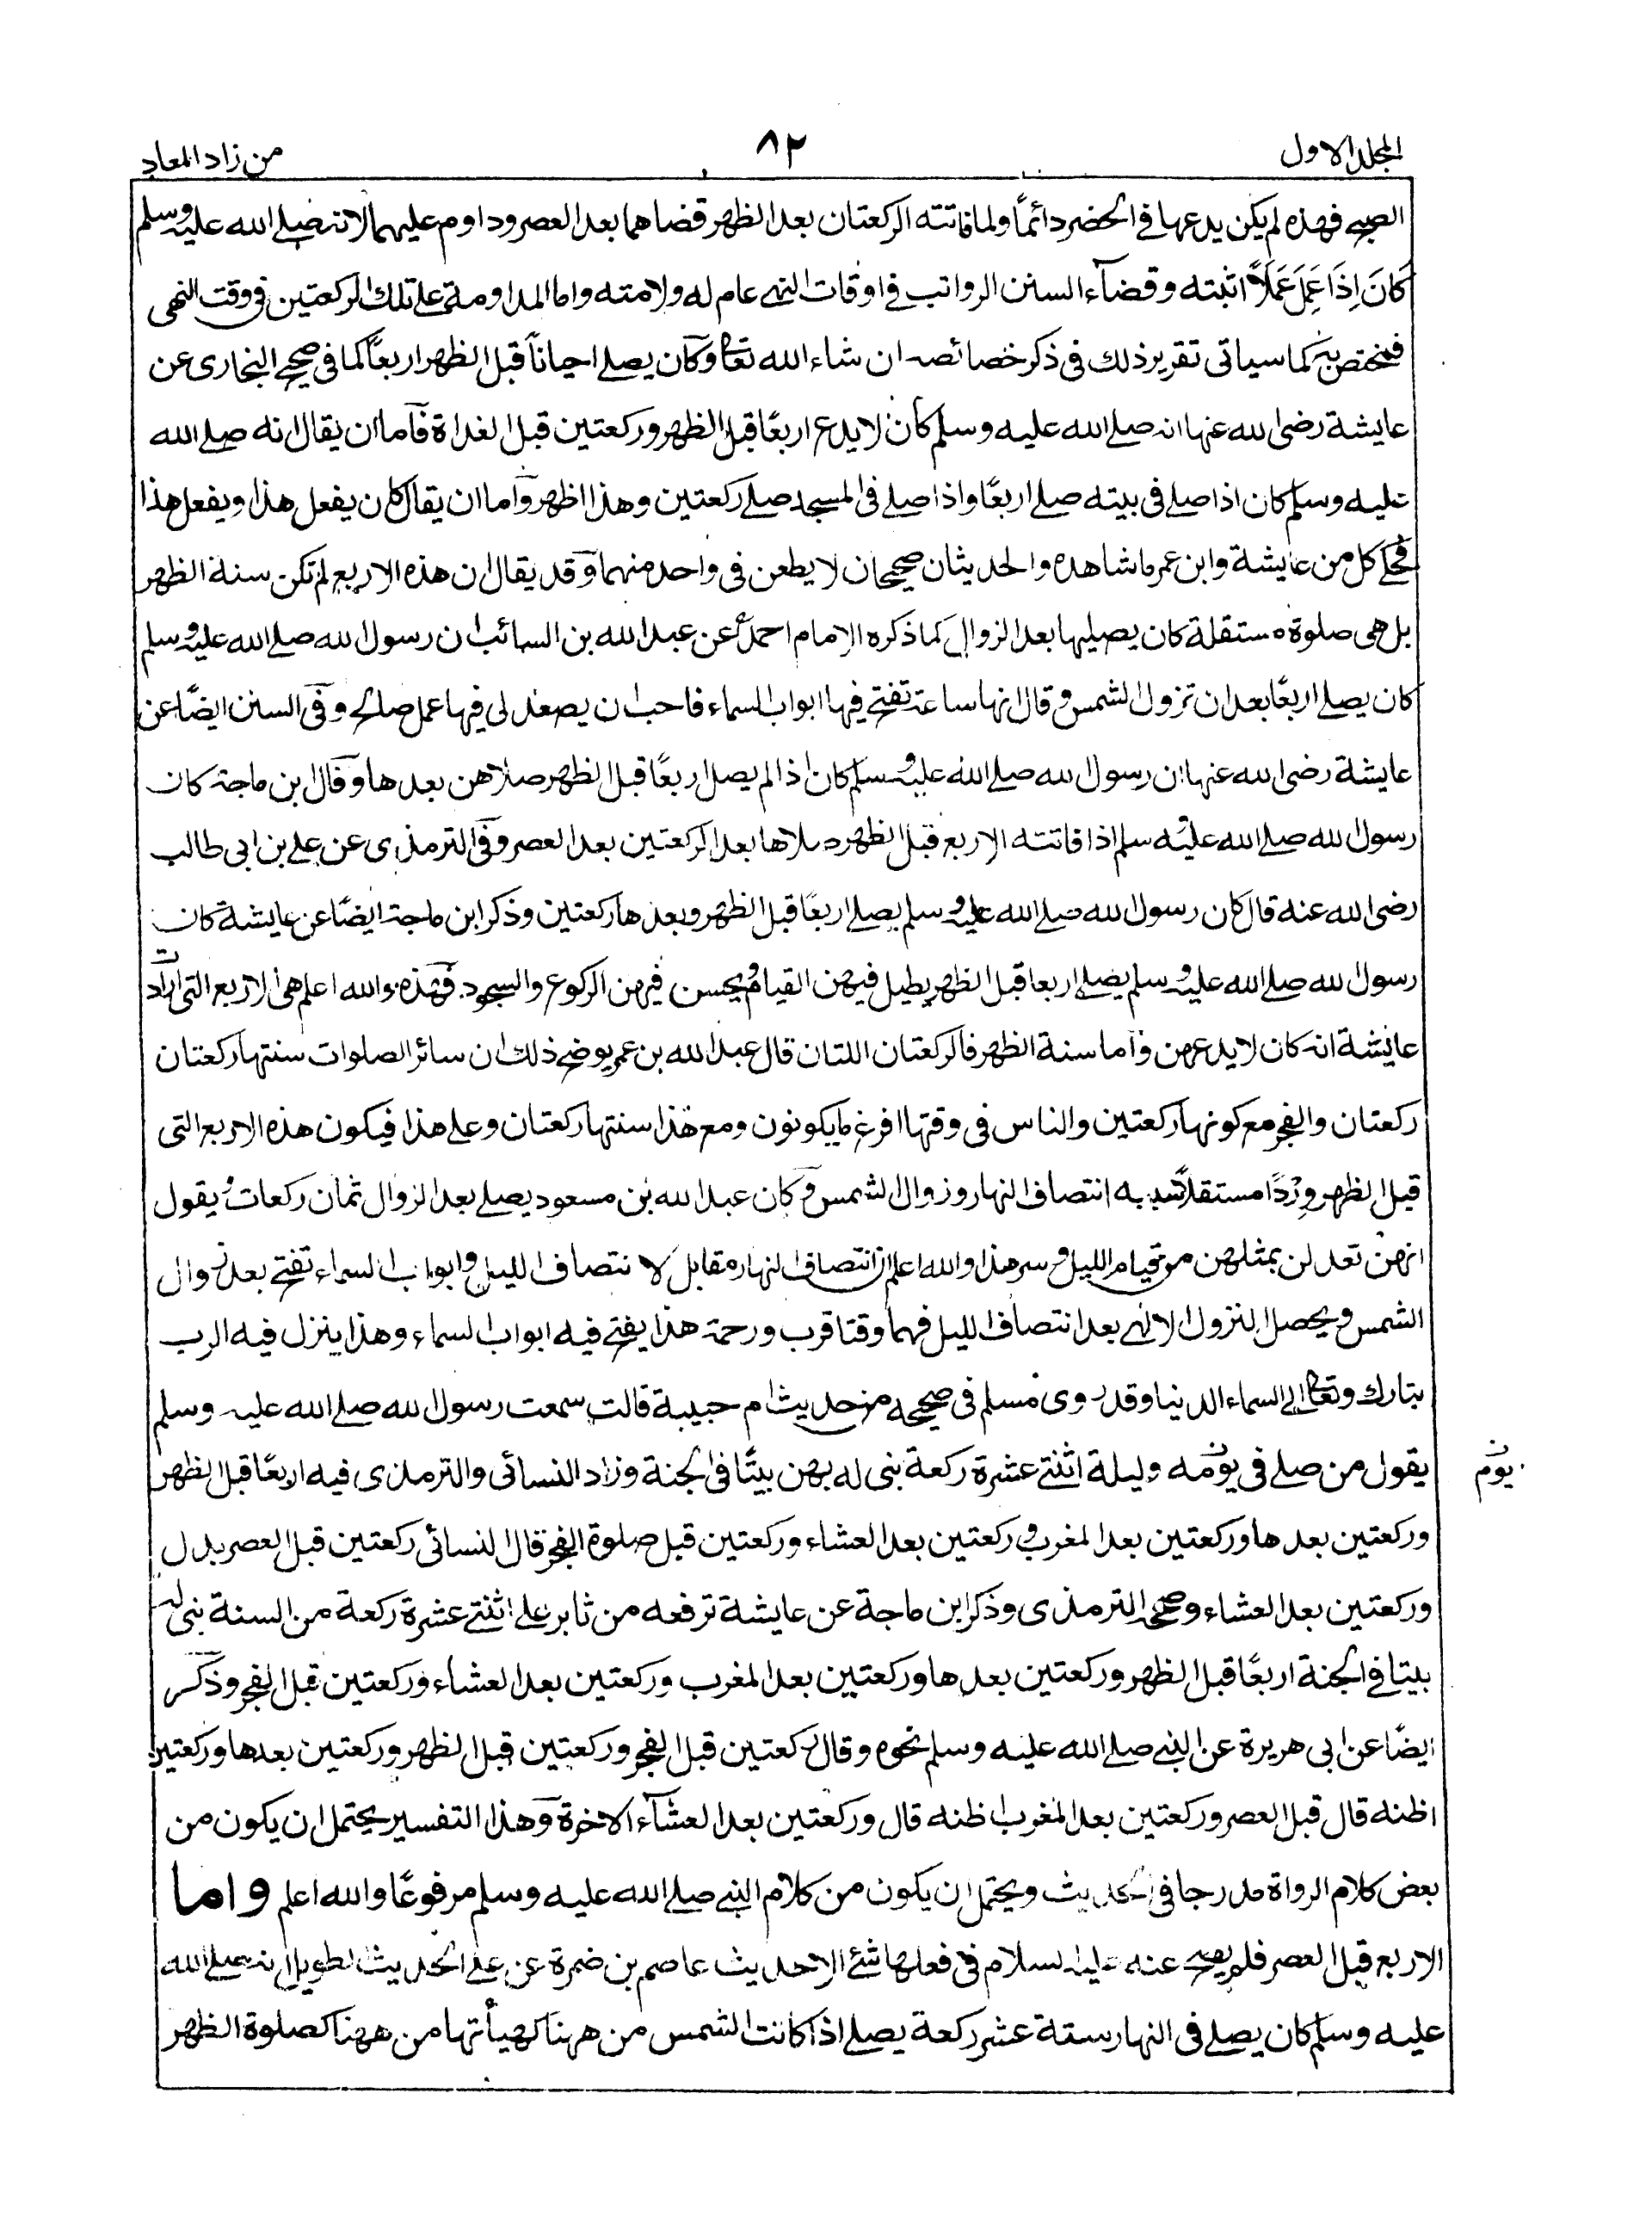 المجلد الاول
٨٢
من زاد المعاد
الصبح فهذه لم يكن يدعها في الحضر دائمًا ولما فاتته الركعتان بعد الظهر قضاهما بعد العصر وداوم عليهما لانه صلے الله عليه وسلم
كَانَ اِذَا عَمِلَ عَمَلًا اثبته وقضآء السنن الرواتب في اوقات النهے عام له ولامته واما المداومة علے تلك الركعتين في وقت النهى
فمختص به كما سياتى تقرير ذلك فى ذكر خصائصه ان شاء الله تعالے وكان يصلے احياناً قبل الظهر اربعًا كما فى صحيح البخارى عن
عايشة رضى الله عنها انه صلے الله عليه وسلم كان لا يدع اربعًا قبل الظهر وركعتين قبل الغداة فآما ان يقال انه صلے الله
عليه وسلم كان اذا صلے فى بيته صلے اربعًا واذا صلے فى المسجد صلے ركعتين وهذا اظهر وآما ان يقال كان يفعل هذا ويفعل هذا
فحكے كل من عايشة وابن عمر ما شاهده والحديثان صحيحان لا يطعن فى واحد منهما وقد يقال ان هذه الاربع لم تكن سنة الظهر
بل هى صلوة مستقلة كان يصليها بعد الزوال كما ذكره الامام احمد عن عبد الله بن السائب ان رسول الله صلے الله عليه وسلم
كان يصلے اربعًا بعد ان تزول الشمس وقال انها ساعة تفتح فيها ابواب السماء فاحب ان يصعد لى فيها عمل صالح وفى السنن ايضًا عن
عايشة رضى الله عنها ان رسول الله صلے الله عليه وسلم كان اذا لم يصل اربعًا قبل الظهر صلاهن بعدها وقال ابن ماجة كان
رسول الله صلے الله عليه وسلم اذا فاتته الاربع قبل الظهر صلاها بعد الركعتين بعد العصر وفى الترمذى عن علے بن ابى طالب
رضى الله عنه قال كان رسول الله صلے الله عليه وسلم يصلے اربعًا قبل الظهر وبعدها ركعتين وذكر ابن ماجة ايضًا عن عايشة كان
رسول الله صلے الله عليه وسلم يصلے اربعا قبل الظهر يطيل فيهن القيام ويحسن فيهن الركوع والسجود فهذه والله اعلم هى الاربع التى ارادت
عايشة انه كان لا يدعهن وآما سنة الظهر فالركعتان اللتان قال عبد الله بن عمر يوضح ذلك ان سائر الصلوات سنتها ركعتان
ركعتان والفجر مع كونها ركعتين والناس فى وقتها افرغ ما يكونون ومع هذا سنتها ركعتان وعلے هذا فيكون هذه الاربع التى
قبل الظهر وِرْدًا مستقلًا سببه انتصاف النهار وزوال الشمس وكان عبد الله بن مسعود يصلے بعد الزوال ثمان ركعات ويقول
انهن تعدلن بمثلهن من قيام الليل وسر هذا والله اعلم ان انتصاف النهار مقابل لانتصاف الليل وابواب السماء تفتح بعد زوال
الشمس ويحصل النزول الالٰهے بعد انتصاف الليل فهما وقتا قرب ورحمة هذا يفتح فيه ابواب السماء وهذا ينزل فيه الرب
تبارك وتعالے الے السماء الدنيا وقد روى مسلم فى صحيحه من حديث ام حبيبة قالت سمعت رسول الله صلے الله عليه وسلم
يقول من صلے فى يومه وليلة اثنتے عشرة ركعة بنى له بهن بيتًا فى الجنة وزاد النسائى والترمذى فيه اربعًا قبل الظهر
يوم
وركعتين بعدها وركعتين بعد المغرب وركعتين بعد العشاء وركعتين قبل صلوة الفجر قال النسائى ركعتين قبل العصر بدل
وركعتين بعد العشاء وصححه الترمذى وذكر ابن ماجة عن عايشة ترفعه من ثابر علے اثنتے عشرة ركعة من السنة بنى له
بيتا فى الجنة اربعًا قبل الظهر وركعتين بعدها وركعتين بعد المغرب وركعتين بعد العشاء وركعتين قبل الفجر وذكر
ايضًا عن ابى هريرة عن النبے صلے الله عليه وسلم نحوه وقال ركعتين قبل الفجر وركعتين قبل الظهر وركعتين بعدها وركعتين
اظنه قال قبل العصر وركعتين بعد المغرب اظنه قال وركعتين بعد العشآء الاخرة وهذا التفسير يحتمل ان يكون من
بعض كلام الرواة مدرجا فى الحديث ويحتمل ان يكون من كلام النبے صلے الله عليه وسلم مرفوعًا والله اعلم واما
الاربع قبل العصر فلم يصح عنه عليه السلام فى فعلها شئ الا حديث عاصم بن ضمرة عن علے الحديث الطويل انه صلے الله
عليه وسلم كان يصلے فى النهار ستة عشر ركعة يصلے اذا كانت الشمس من ههنا كهيأتها من ههنا كصلوة الظهر